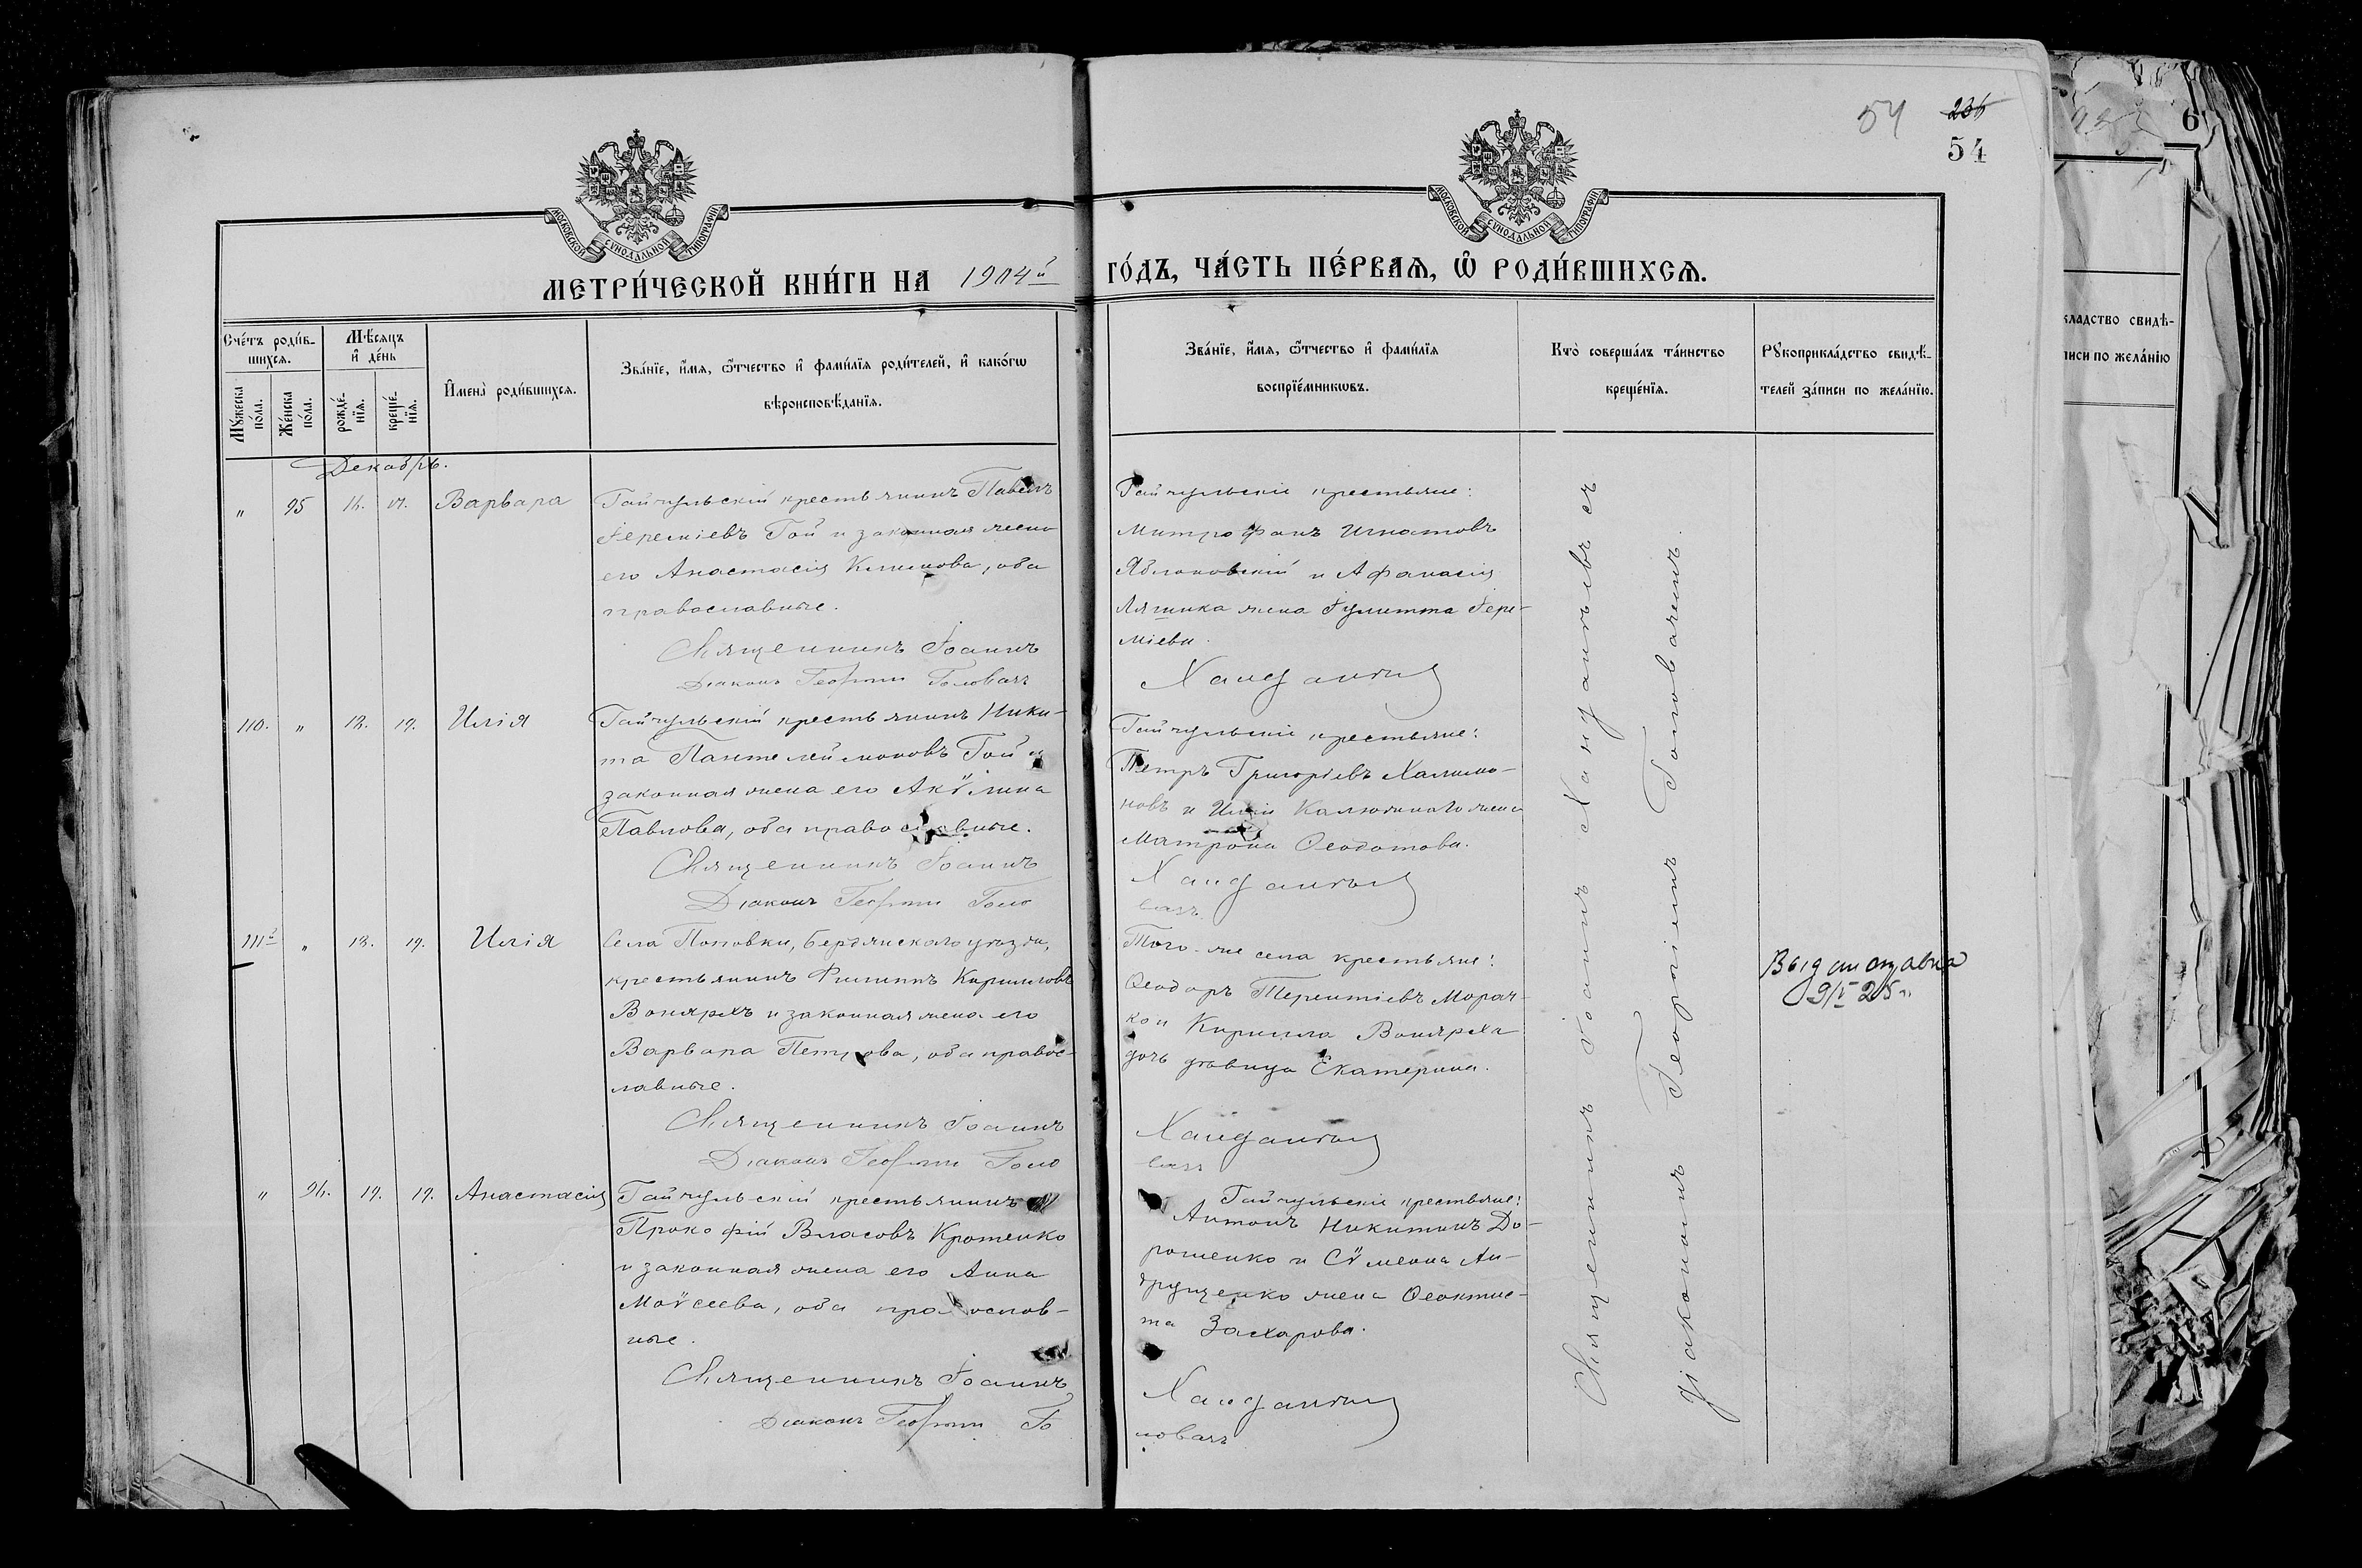 54 236
54
МОСКОВСКОЙ СѴНОДАЛЬНОЙ ТИПОГРАФІИ
МОСКОВСКОЙ СѴНОДАЛЬНОЙ ТИПОГРАФІИ
МЕТРИ́ЧЕСКОЙ КНИ́ГИ НА 1904й ГО́ДЪ, ЧА́СТЬ ПЕ́РВАЯ, Ѡ҆ РОДИ́ВШИХСЯ.
Сче́тъ роди́в-
шихся.
Мѣ́сяцъ
и҆ де́нь
Мꙋ́жеска
по́ла.
Же́нска
по́ла.
рожде́-
нїя.
креще́-
нїя.
И҆мена̀ роди́вшихся.
Зва́нїе, и҆́мя, ѻ҆́тчество и҆ фами́лїя роди́телей, и҆ како́гѡ
вѣроисповѣ́данїя.
Зва́нїе, и҆́мя, ѻ҆́тчество и҆ фами́лїя
воспрїе́мникѡвъ.
Кто̀ соверша́лъ та́инство
креще́нїя.
Рꙋкоприкла́дство свидѣ́-
телей за́писи по жела́нїю.
Декабрь.
" 95 16. 17. Варвара
Гайчульскій крестьянинъ Павелъ
Іереміевъ Гой и законная жена
его Анастасія Климова, оба
православные.
Священникъ Іоаннъ
Діаконъ Георгій Головачъ
Гайчульскіе крестьяне:
Митрофанъ Игнатовъ
Яблоновскій и Афанасія
Ляшика жена Іулитта Іере-
міева.
110. " 18. 19. Илія
Гайчульскій крестьянинъ Ники-
та Пантелеймоновъ Гой и
законная жена его Акѵлина
Павлова, оба православные.
Священникъ Іоаннъ
Діаконъ Георгій Голо
Гайчульскіе крестьяне:
Петръ Григоріевъ Халимо-
новъ и Иліи Калюжнаго жена
Матрона Ѳеодотова.
вачъ
111й " 18. 19. Илія
Села Поповки, Бердянскаго уѣзда,
крестьянинъ Филиппъ Кирилловъ
Вонярхъ и законная жена его
Варвара Петрова, оба правос-
лавные.
Священникъ Іоаннъ
Діаконъ Георгій Голо
Того-же села крестьяне:
Ѳеодоръ Терентіевъ Морач-
ко и Кирилла Вонярха
дочь дѣвица Екатерина.
вачъ
9/V 25 г.
" 96. 19. 19. Анастасія
Гайчульскій крестьянинъ
Прокофій Власовъ Кротенко
и законная жена его Анна
Моѵсеева, оба православ-
ные.
Священникъ Іоаннъ
Діаконъ Георгій Го
Гайчульскіе крестьяне:
Антонъ Никитинъ До-
рошенко и Сѵмеона Ан-
друщенко жена Ѳеоктис-
та Захарова.
ловачъ
Священникъ Іоаннъ
діакономъ Георгіемъ Головачемъ.
6
кладство свидѣ-
писи по жела́нїю